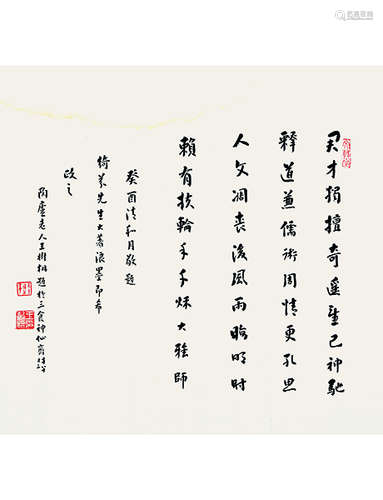 君才獨擅奇遙望已神馳
釋道兼儒術周情更孔思
人文凋喪後風雨晦明時
賴有扶輪手千秋大雅師
癸酉清和月敬題
先生大著浪墨即希
政之
陶廬老人王樹枏題於三食神仙